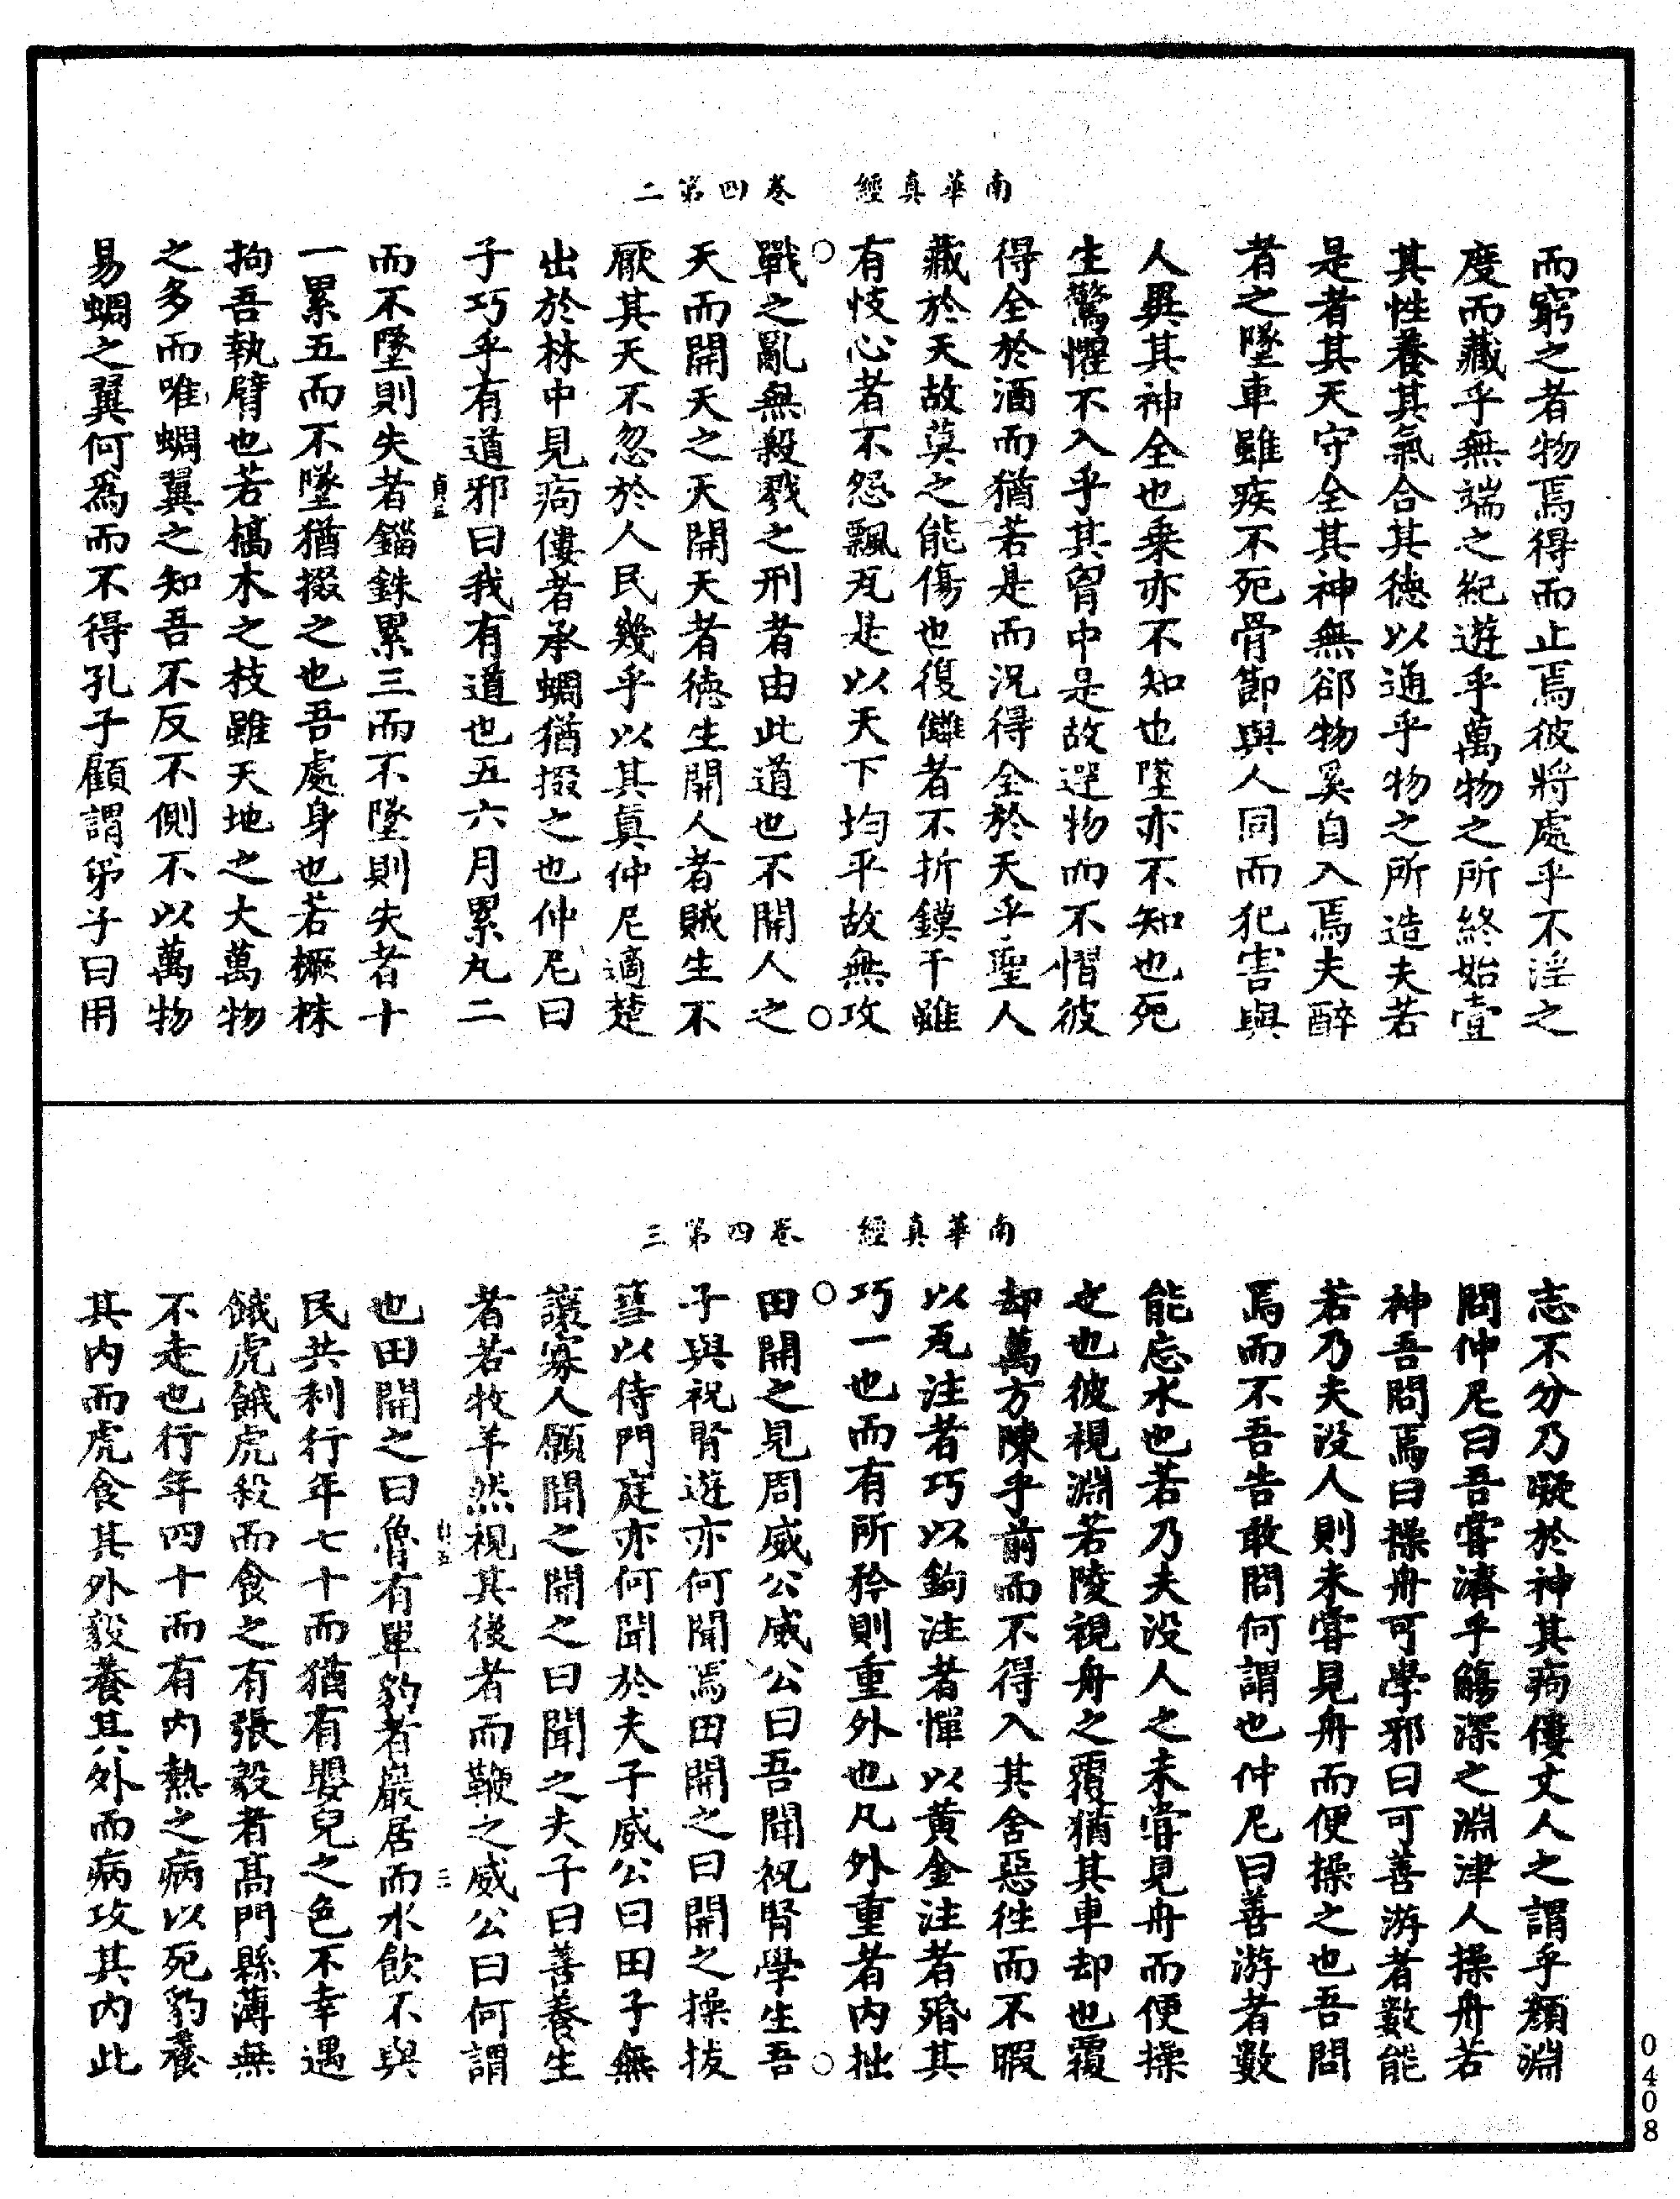 南華真經　卷四第二
而窮之者物焉得而止焉彼將處乎不淫之
度而藏乎無端之紀遊乎萬物之所終始壹
其性養其氣合其德以通乎物之所造夫若
是者其天守全其神無郤物奚自入焉夫醉
者之墜車雖疾不死骨節與人同而犯害與
人異其神全也乗亦不知也墜亦不知也死
生驚懼不入乎其胷中是故遻物而不慴彼
得全於酒而猶若是而況得全於天乎聖人
藏於天故莫之能傷也復讎者不折鏌干雖
有忮心者不怨飄瓦是以天下均平故無攻
戰之亂無殺戮之刑者由此道也不開人之
天而開天之天開天者德生開人者賊生不
厭其天不忽於人民幾乎以其真仲尼適楚
出於林中見痀僂者承蜩猶掇之也仲尼曰
子巧乎有道邪曰我有道也五六月累丸二
而不墜則失者錙銖累三而不墜則失者十
一累五而不墜猶掇之也吾處身也若橛株
拘吾執臂也若槁木之枝雖天地之大萬物
之多而唯蜩翼之知吾不反不側不以萬物
易蜩之翼何爲而不得孔子顧謂弟子曰用
南華真經　卷四第三
志不分乃凝於神其痀僂丈人之謂乎顏淵
問仲尼曰吾嘗濟乎觴深之淵津人操舟若
神吾問焉曰操舟可學邪曰可善游者數能
若乃夫没人則未嘗見舟而便操之也吾問
焉而不吾告敢問何謂也仲尼曰善游者數
能忘水也若乃夫没人之未嘗見舟而便操
之也彼視淵若陵視舟之覆猶其車却也覆
却萬方陳乎前而不得入其舍惡徃而不暇
以瓦注者巧以鉤注者憚以黄金注者殙其
巧一也而有所矜則重外也凡外重者内拙
田開之見周威公威公曰吾聞祝腎學生吾
子與祝腎遊亦何聞焉田開之曰開之操拔
篲以侍門庭亦何聞於夫子威公曰田子無
讓寡人願聞之開之曰聞之夫子曰善養生
者若牧羊然視其後者而鞭之威公曰何謂
也田開之曰魯有單豹者巖居而水飲不與
民共利行年七十而猶有嬰兒之色不幸遇
餓虎餓虎殺而食之有張毅者髙門縣薄無
不走也行年四十而有内熱之病以死豹養
其内而虎食其外毅養其外而病攻其内此
0408